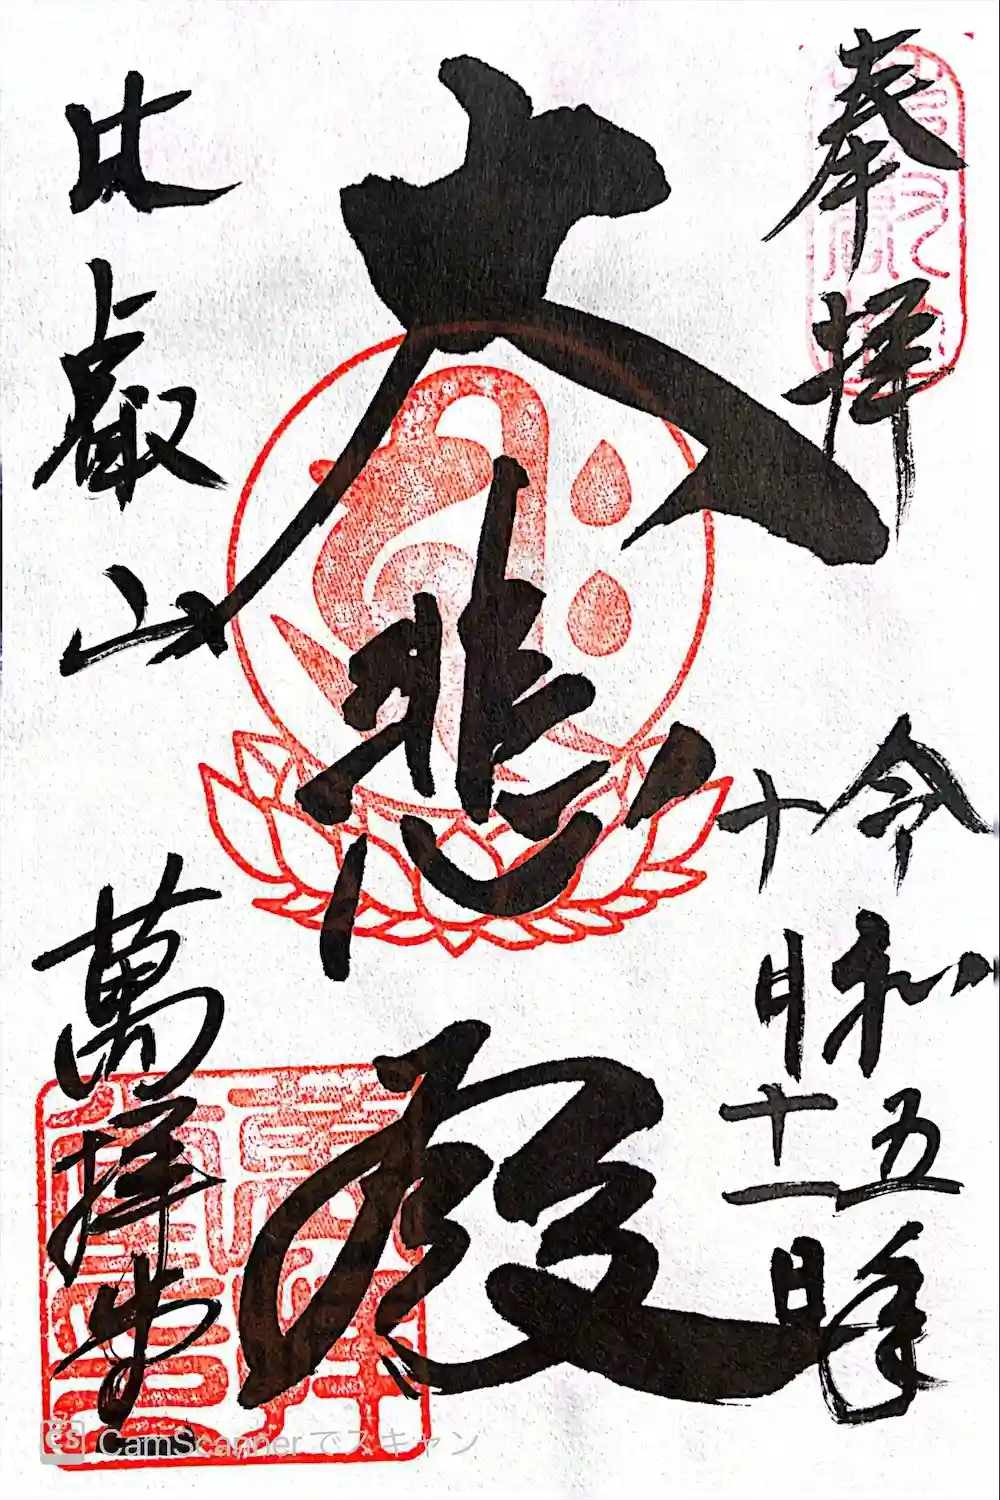 奉拝
令和五年
十月十一日
大悲殿
比叡山
萬拝堂
CamScannerでスキャン